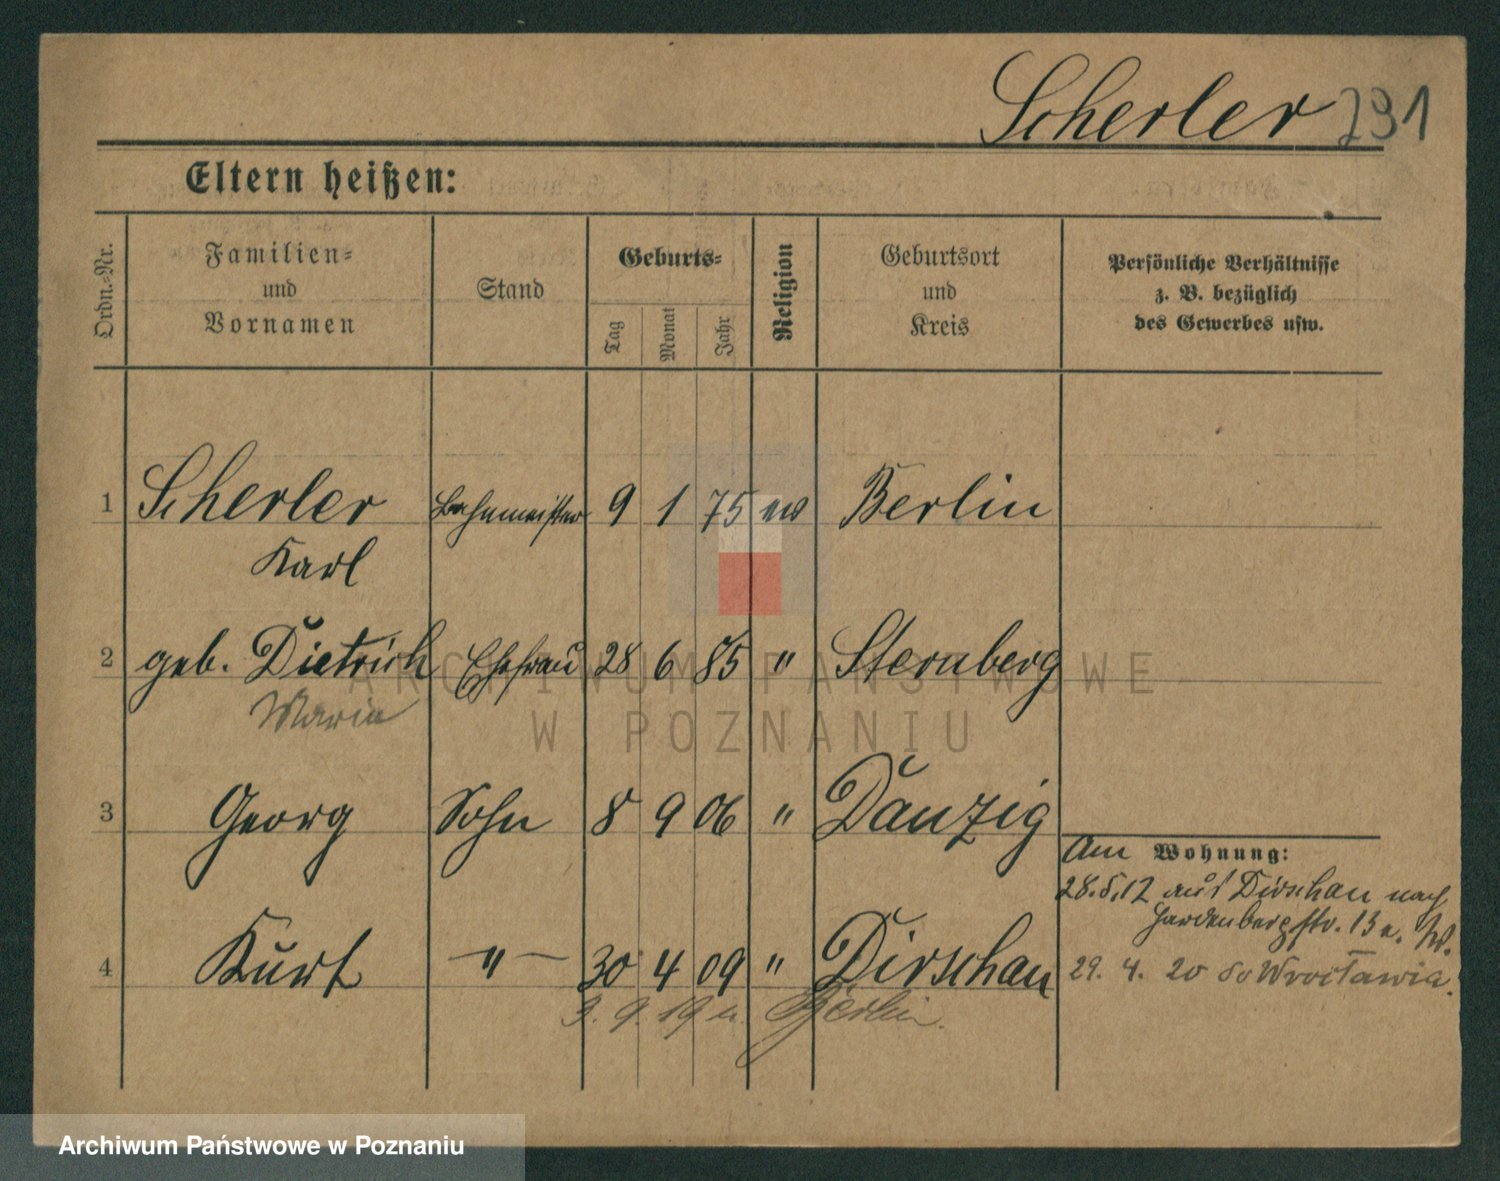 Scherler 791
Eltern heißen:
Ordn.-Nr.
Familien-
und
Vornamen
Stand
Geburts-
Tag
Monat
Jahr
Religion
Geburtsort
und
Kreis
Persönliche Verhältnisse
z. B. bezüglich
des Gewerbes usw.
1 Scherler Bahnmeister 9 1 75 ev Berlin
Karl
2 geb. Dietrich Ehefrau 28 6 85 " Sternberg
Maria
3 Georg Sohn 8 9 06 " Danzig
Am Wohnung:
28.5.12 aus Dirschau nach
Hardenbergstr. 13 a.
4 Kurt — " — 30 4 09 " Dirschau
29. 4. 20 do Wrocławia.
3. 9. 19 n. Berlin.
ARCHIWUM PAŃSTWOWE
W POZNANIU
Archiwum Państwowe w Poznaniu